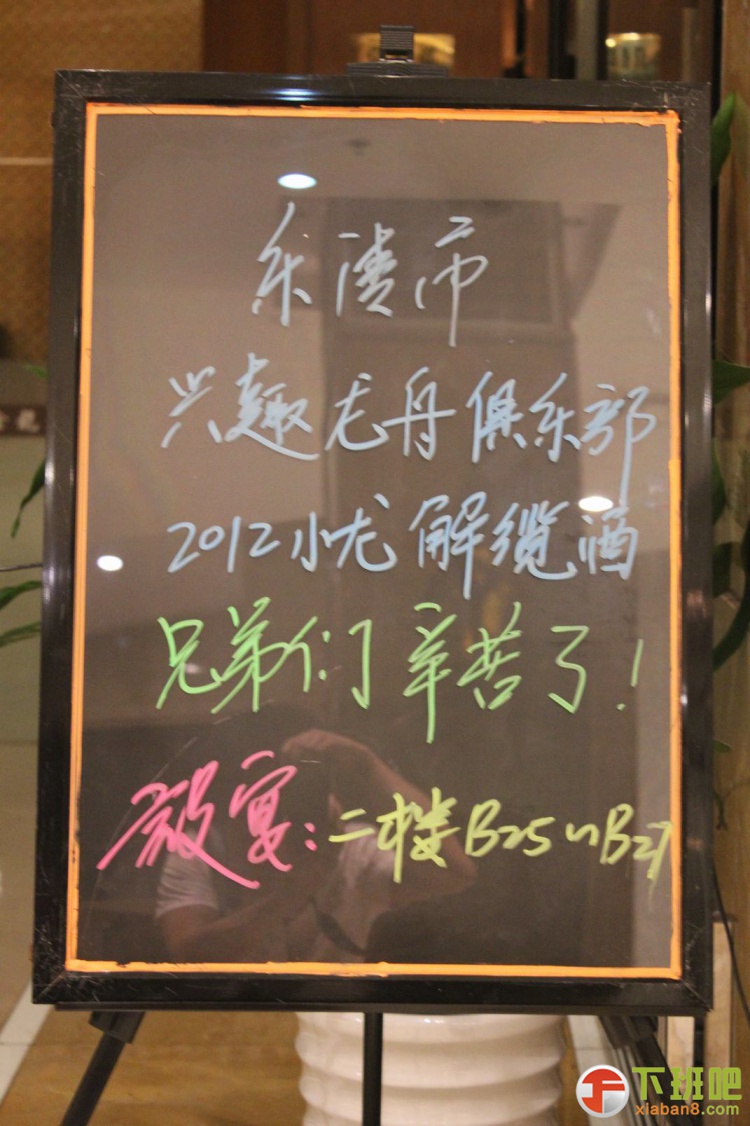 乐清市
兴趣龙舟俱乐部
2012小龙解缆酒
兄弟们辛苦了!
设宴:二楼B25~B27
下班吧
xiaban8.com